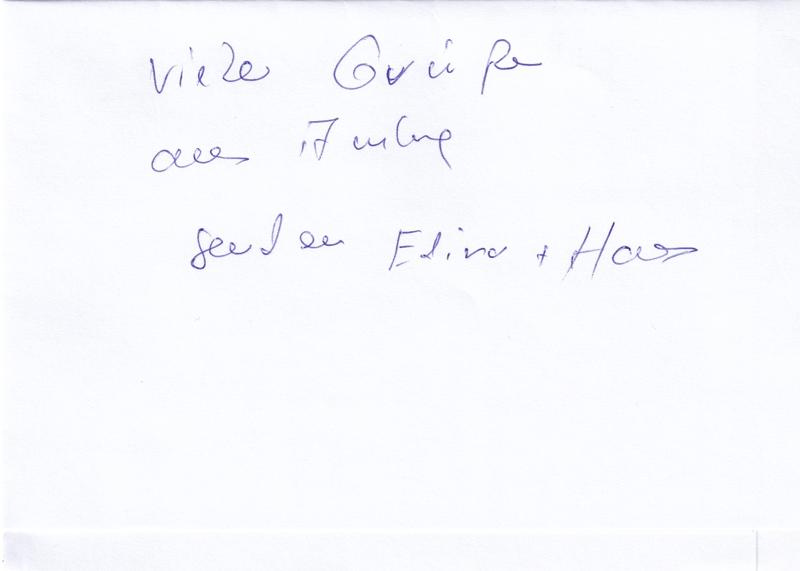 viele Grüße
aus
senden Elina + Hans